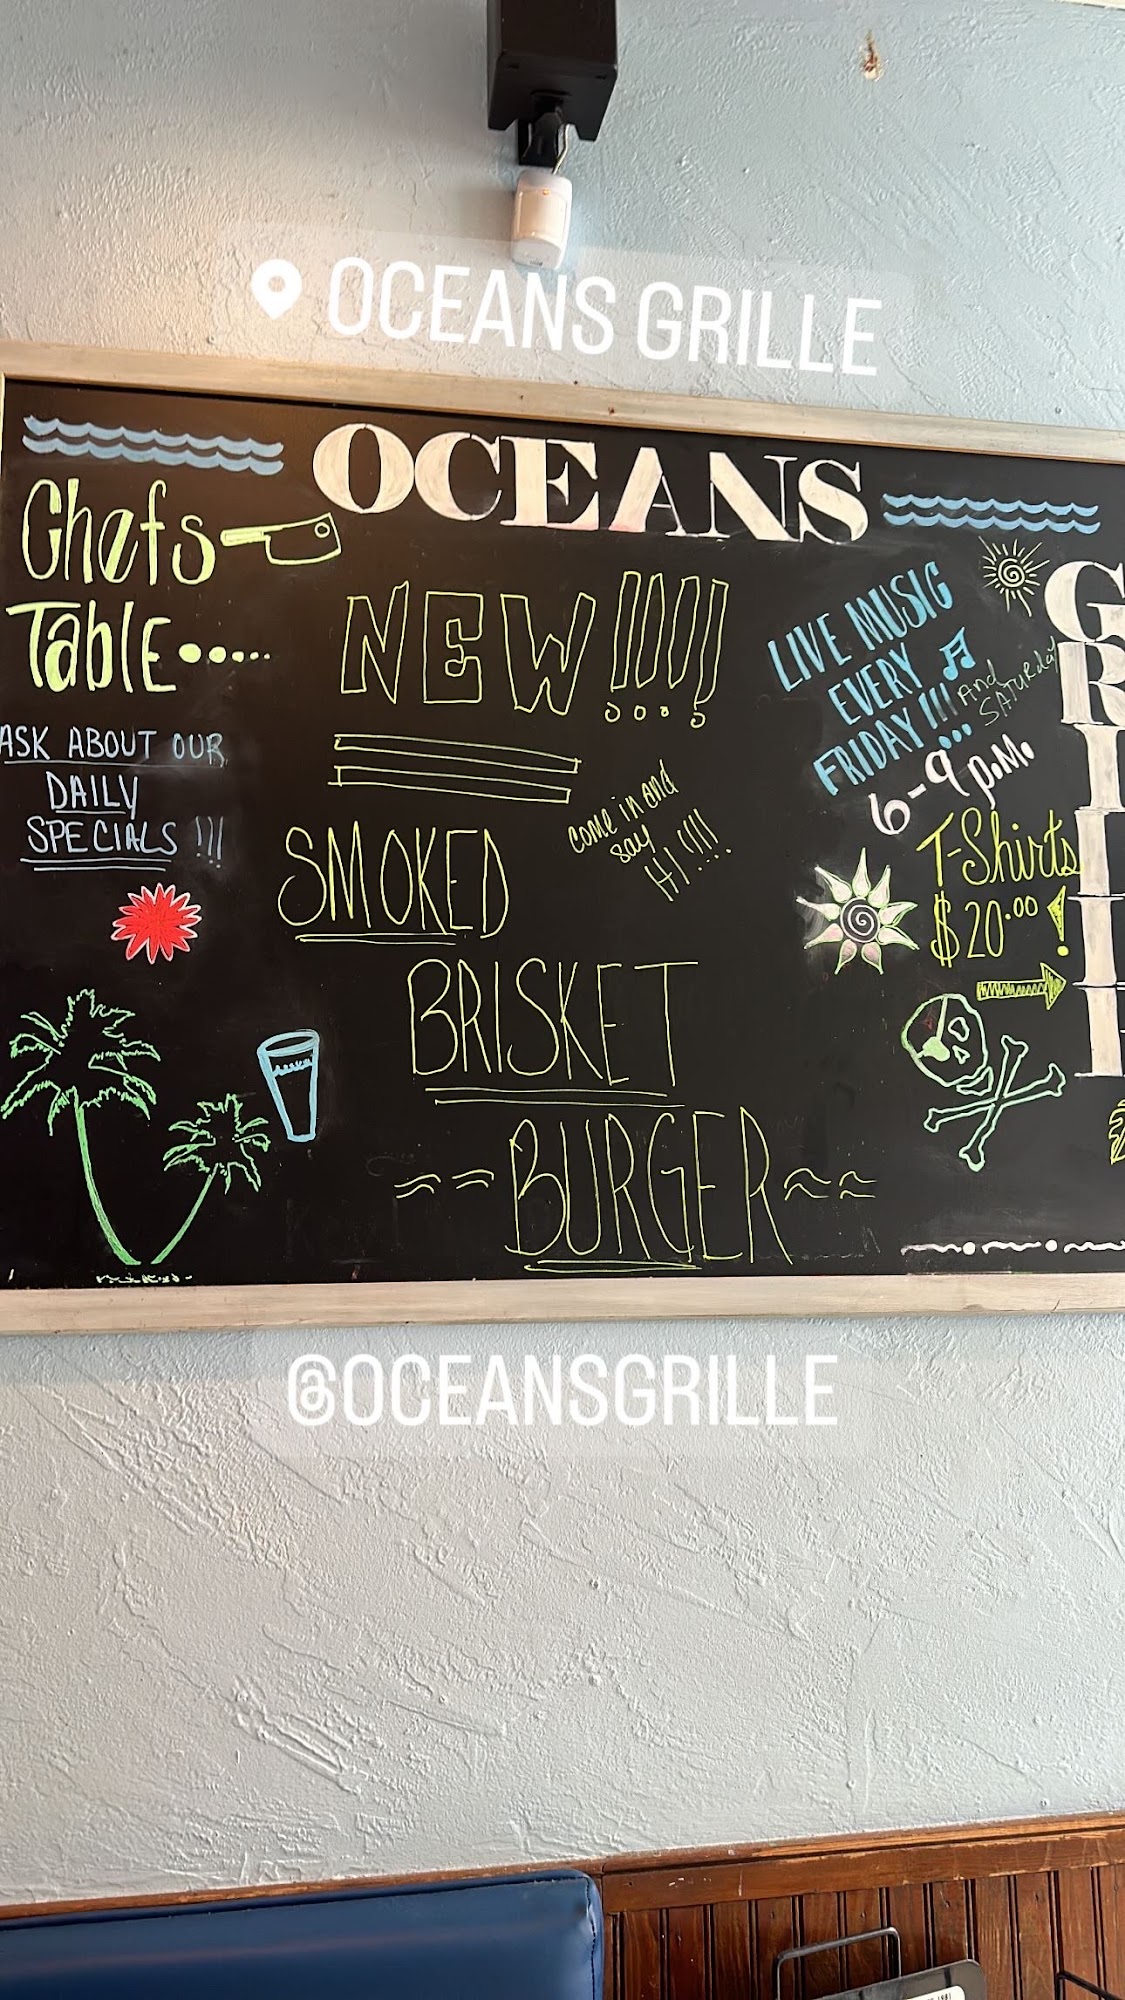 OCEANS GRILLE
OCEANS
GRILLE
Chefs
Table.....
ASK ABOUT OUR
DAILY
SPECIALS !!!
NEW!!!!
come in and
say
HI!!!!
SMOKED
BRISKET
BURGER
LIVE MUSIC
EVERY
FRIDAY!!!
And
SATURday
6-9 p.m.
T-Shirts
$20.00!
@OCEANSGRILLE